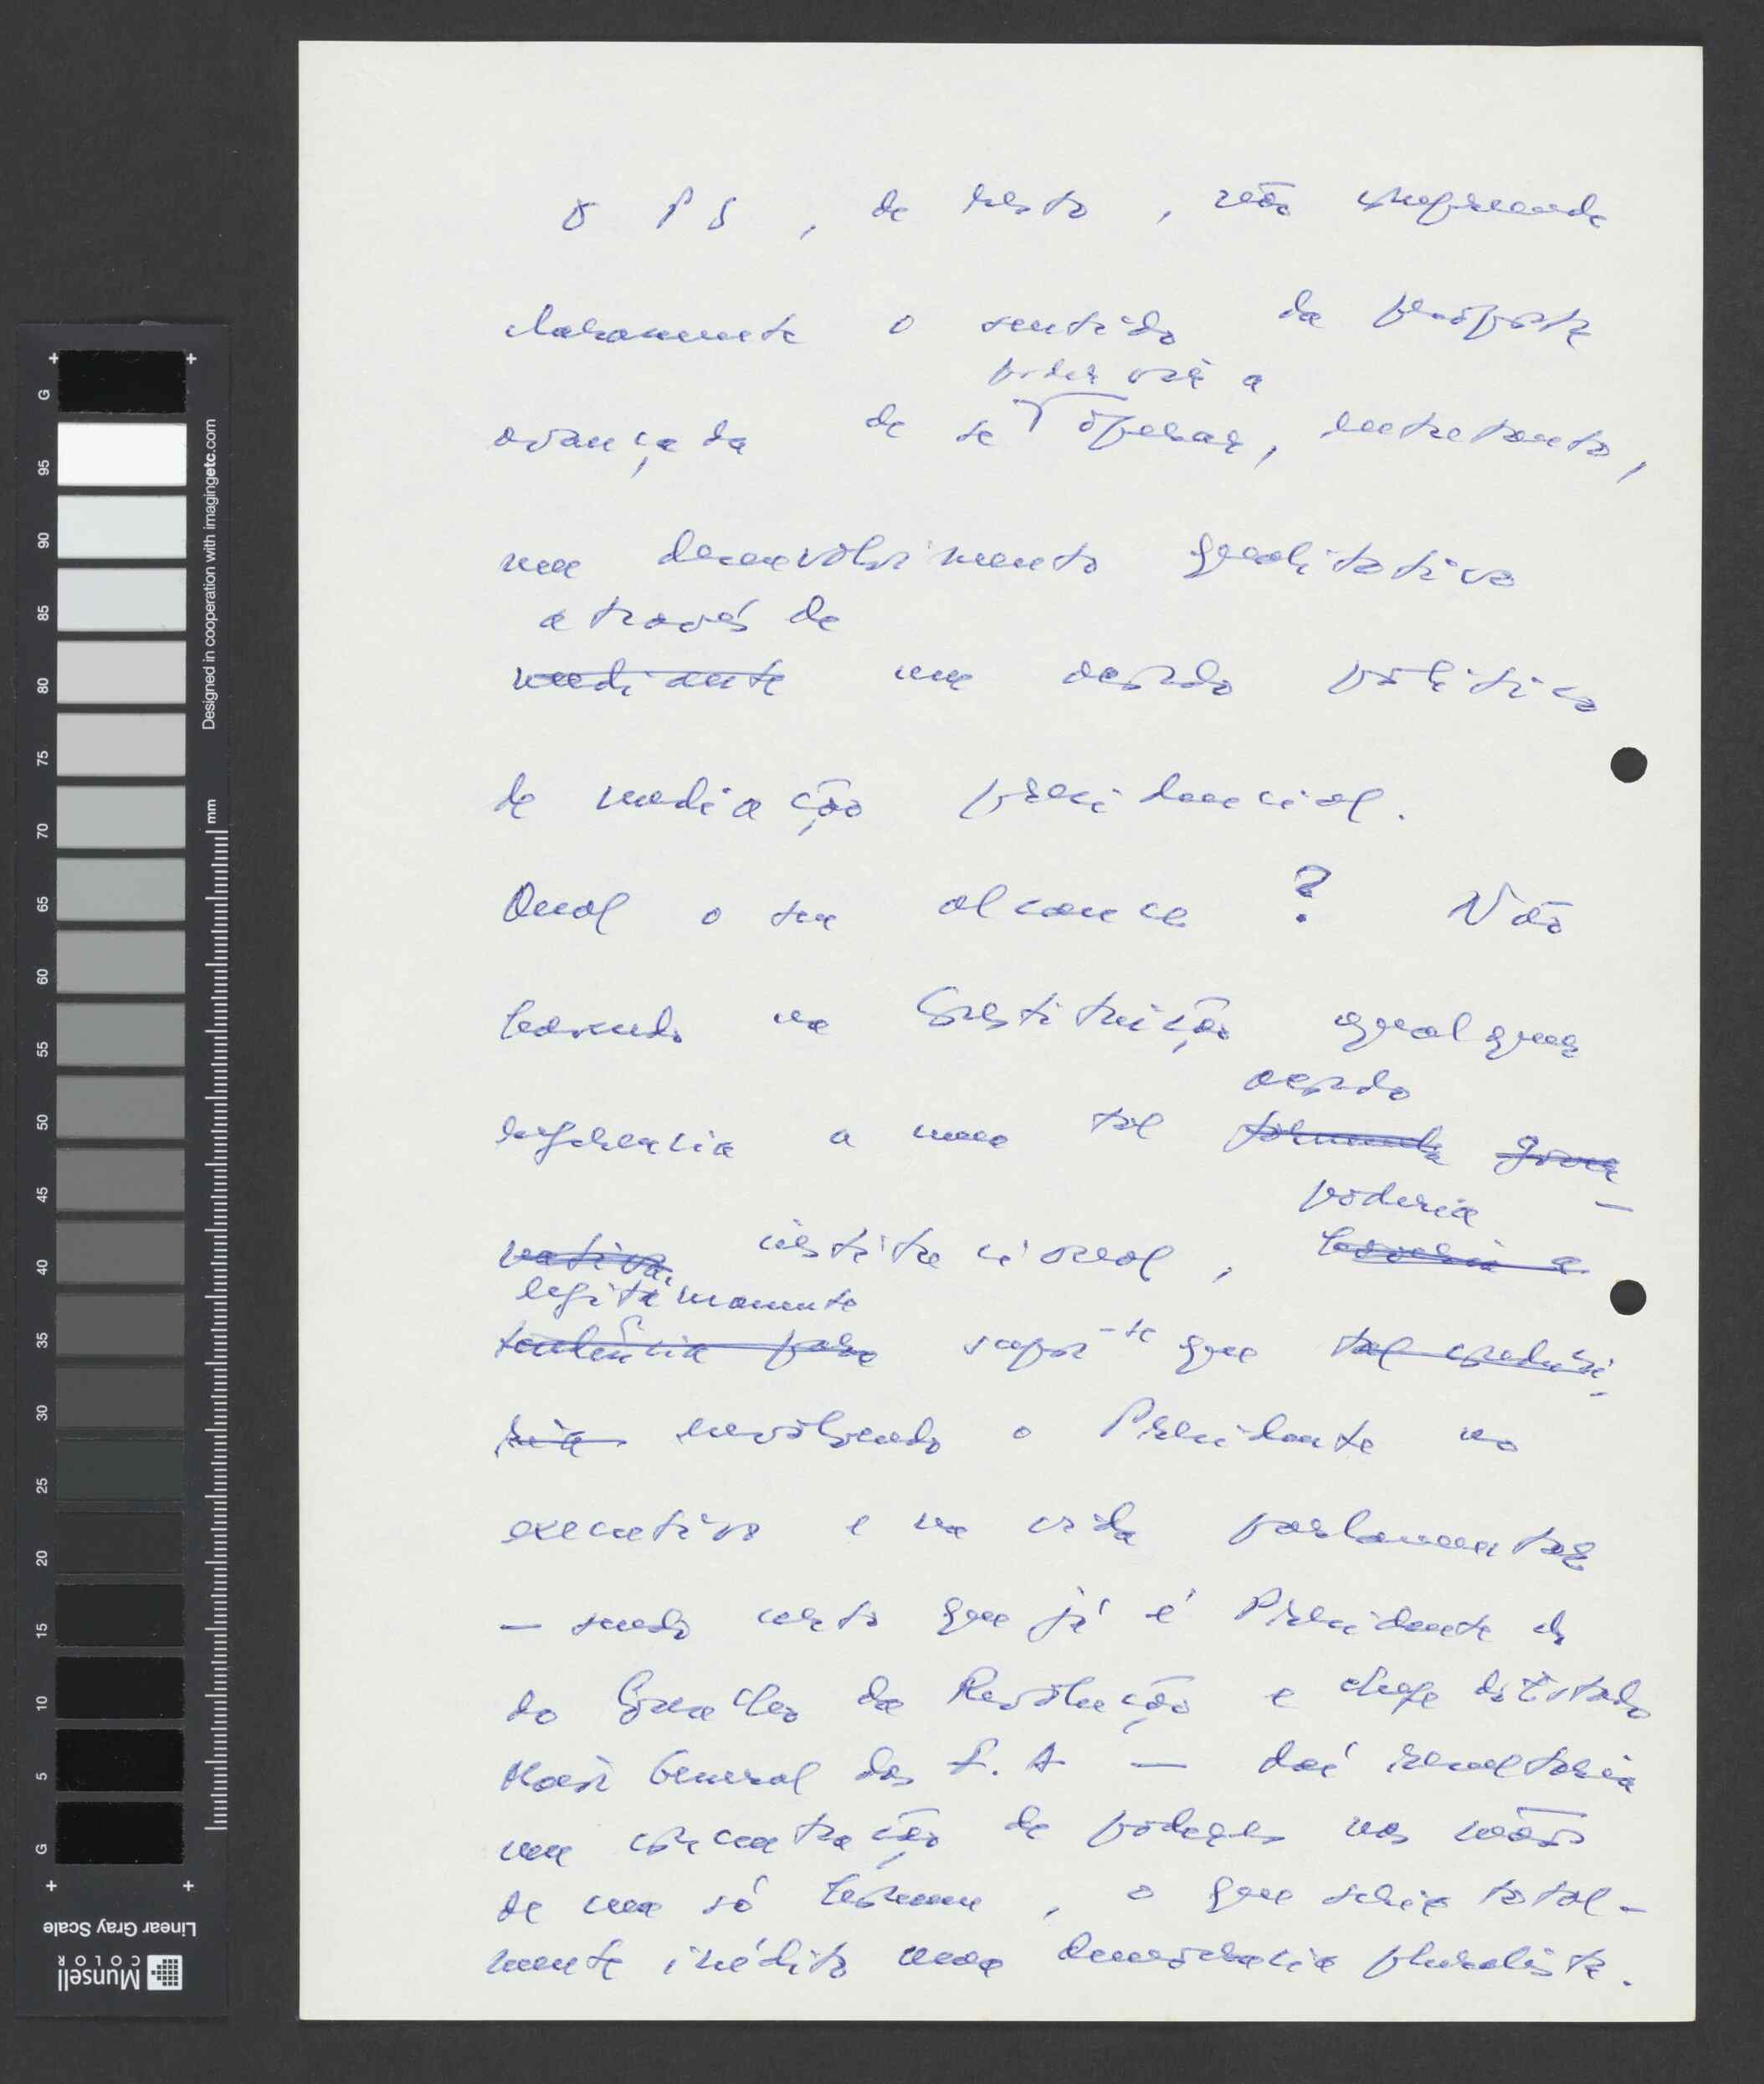 O PS, de resto, não compreende
claramente o sentido da proposta
poder vir a
avançada de se operar, entretanto,
um desenvolvimento qualitativo
através de
mediante um acordo político
de mediação presidencial.
Qual o seu alcance? Não
havendo na Constituição qualquer
acordo
referência a um tal formula gover
poderia -
nativa, institucional, haveria a
legitimamente
tendência para supor-se que tal conduzi
ria envolvendo o Presidente no
executivo e na vida parlamentar
- sendo certo que já é Presidente
do Conselho da Revolução e chefe do Estado
Maior General das F. A - daí resultaria
uma concentração de poderes nas mãos
de um só homem, o que seria total-
mente inédito numa democracia pluralista.
G 95 90 85 80 75 70 65 60 55 50 45 40 35 30 25 20 15 10 5 G
Designed in cooperation with imagingetc.com
mm
Linear Gray Scale
Munsell
COLOR